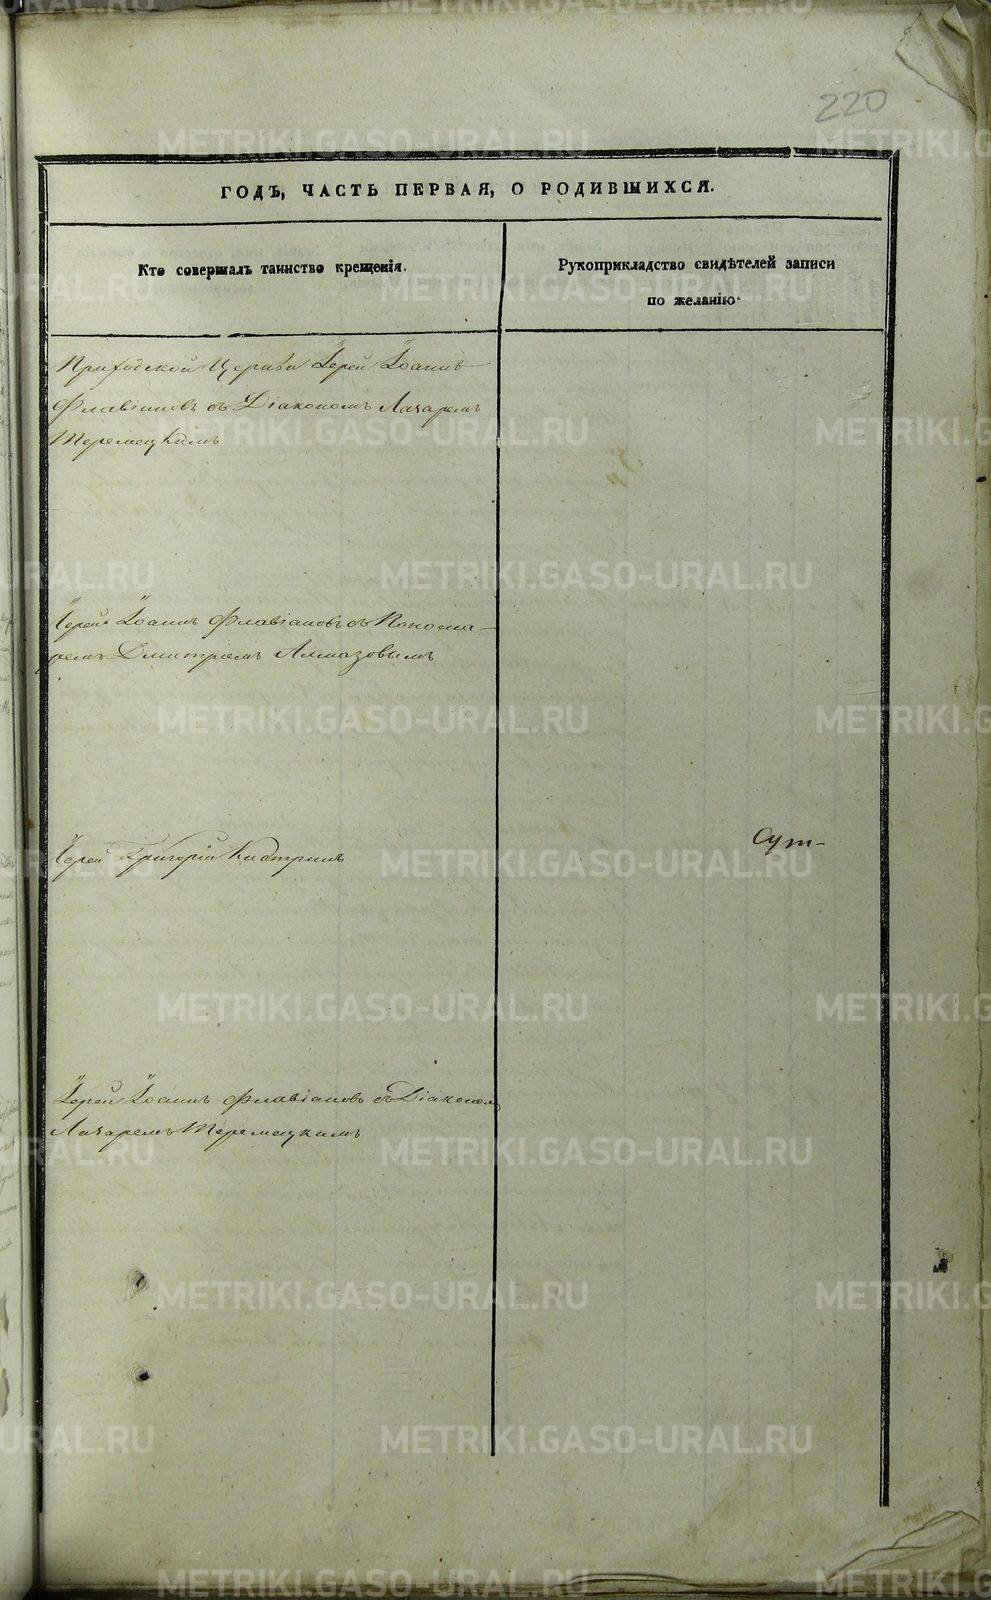 220
ГОДЪ, ЧАСТЬ ПЕРВАЯ, О РОДИВШИХСЯ.
Кто совершалъ таинство крещенія.
Рукоприкладство свидѣтелей записи
по желанію.
Приходской Церкви Іерей Іоаннъ
Флавіановъ съ Діакономъ Лазаремъ
Теремецкимъ
Іерей Іоаннъ Флавіановъ съ Понома-
ремъ Дмитріемъ Алмазовымъ
Іерей Григорій
Сут-
Іерей Іоаннъ Флавіановъ съ Діакономъ
Лазаремъ Теремецкимъ
METRIKI.GASO-URAL.RU